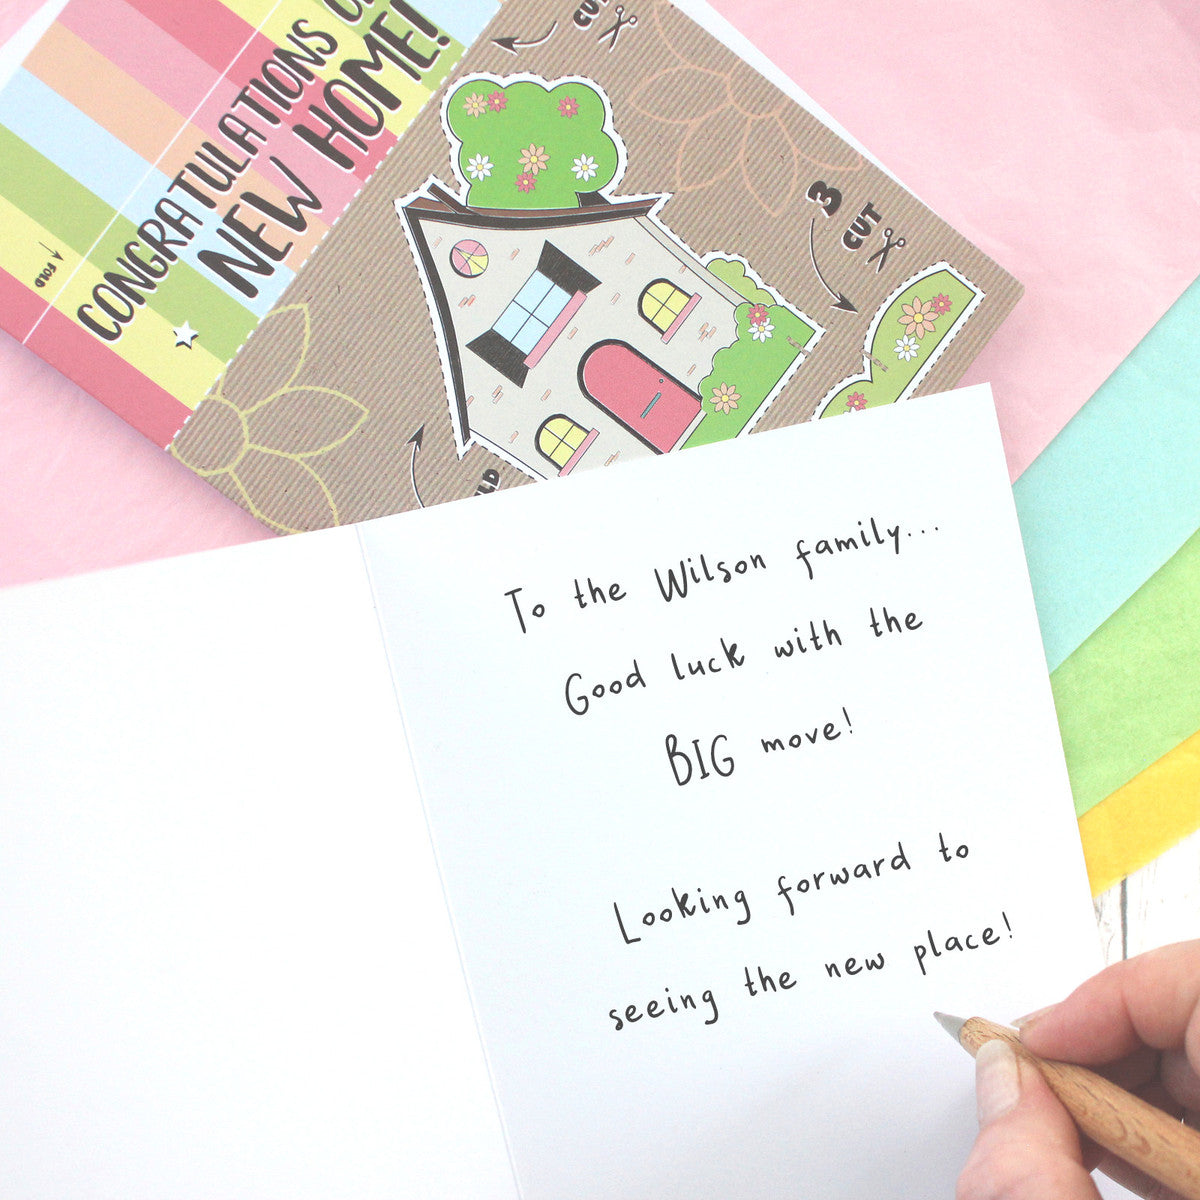 CONGRATULATIONS
NEW HOME!
FOLD
CUT
3
CUT
To the Wilson family...
Good luck with the
BIG move!
Looking forward to
seeing the new place!